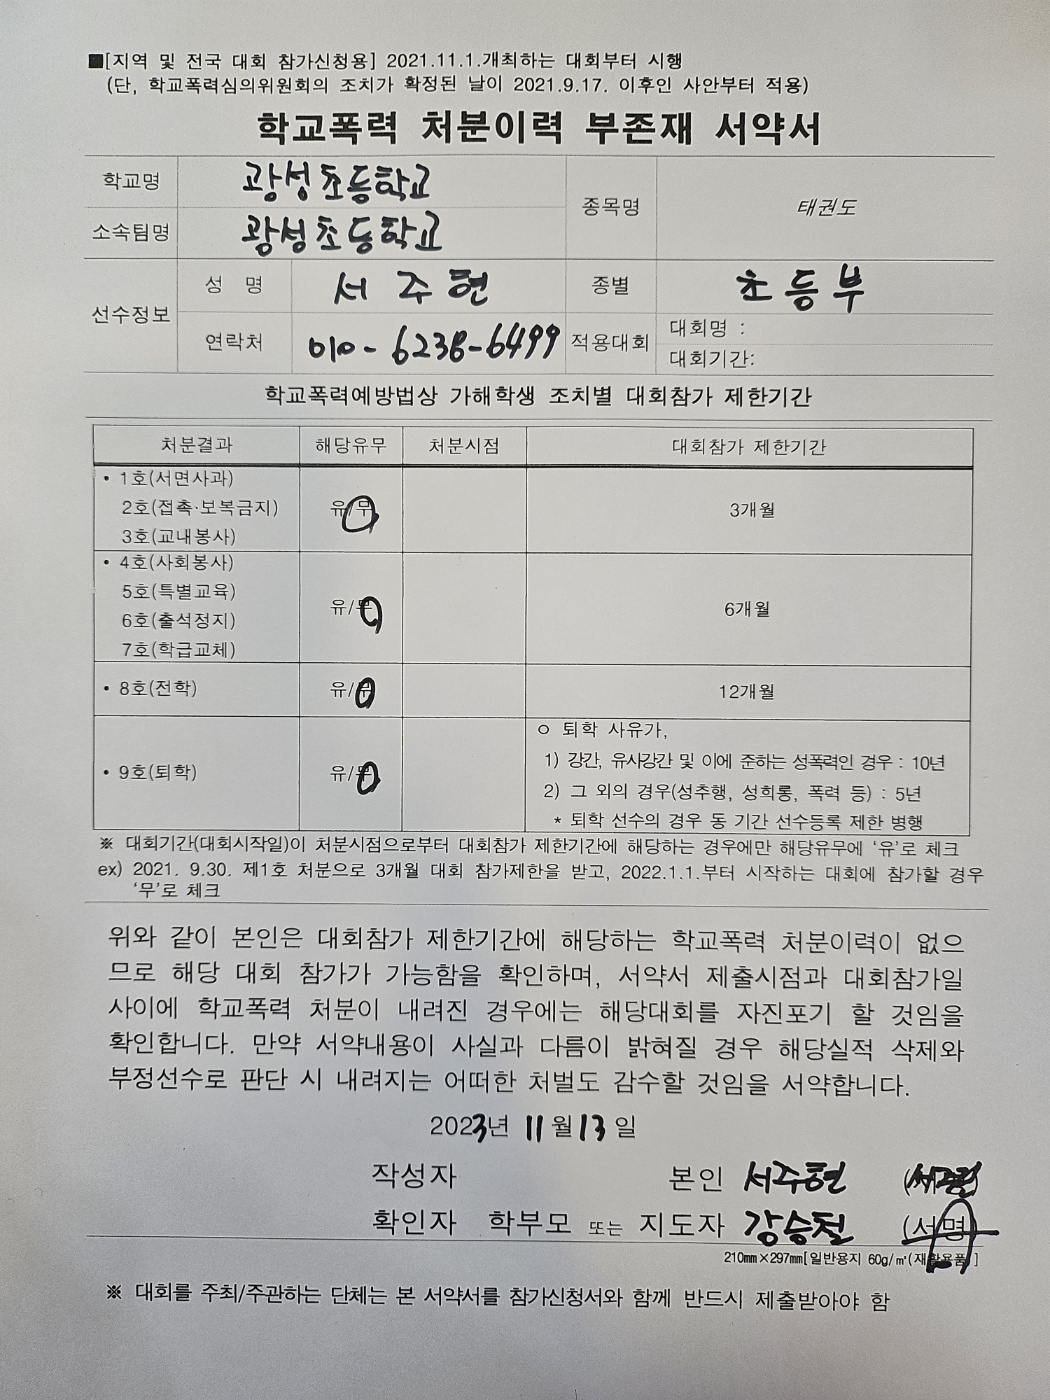 ■[지역 및 전국 대회 참가신청용] 2021.11.1.개최하는 대회부터 시행
(단, 학교폭력심의위원회의 조치가 확정된 날이 2021.9.17. 이후인 사안부터 적용)
학교폭력 처분이력 부존재 서약서
학교명 광성초등학교
종목명 태권도
소속팀명 광성초등학교
선수정보
성 명 서주현 종별 초등부
연락처 010-6238-6499 적용대회
대회명 :
대회기간:
학교폭력예방법상 가해학생 조치별 대회참가 제한기간
처분결과 해당유무 처분시점 대회참가 제한기간
• 1호(서면사과)
2호(접촉·보복금지) 유/무 3개월
3호(교내봉사)
• 4호(사회봉사)
5호(특별교육)
유/무 6개월
6호(출석정지)
7호(학급교체)
• 8호(전학) 유/무 12개월
• 9호(퇴학) 유/무
ㅇ 퇴학 사유가,
1) 강간, 유사강간 및 이에 준하는 성폭력인 경우 : 10년
2) 그 외의 경우(성추행, 성희롱, 폭력 등) : 5년
* 퇴학 선수의 경우 동 기간 선수등록 제한 병행
※ 대회기간(대회시작일)이 처분시점으로부터 대회참가 제한기간에 해당하는 경우에만 해당유무에 ‘유’로 체크
ex) 2021. 9.30. 제1호 처분으로 3개월 대회 참가제한을 받고, 2022.1.1.부터 시작하는 대회에 참가할 경우
‘무’로 체크
위와 같이 본인은 대회참가 제한기간에 해당하는 학교폭력 처분이력이 없으
므로 해당 대회 참가가 가능함을 확인하며, 서약서 제출시점과 대회참가일
사이에 학교폭력 처분이 내려진 경우에는 해당대회를 자진포기 할 것임을
확인합니다. 만약 서약내용이 사실과 다름이 밝혀질 경우 해당실적 삭제와
부정선수로 판단 시 내려지는 어떠한 처벌도 감수할 것임을 서약합니다.
2023년 11월 13일
작성자 본인 서주현 (서주현)
확인자 학부모 또는 지도자 강승철 (서명)
210㎜×297㎜[일반용지 60g/㎡(재활용품)]
※ 대회를 주최/주관하는 단체는 본 서약서를 참가신청서와 함께 반드시 제출받아야 함